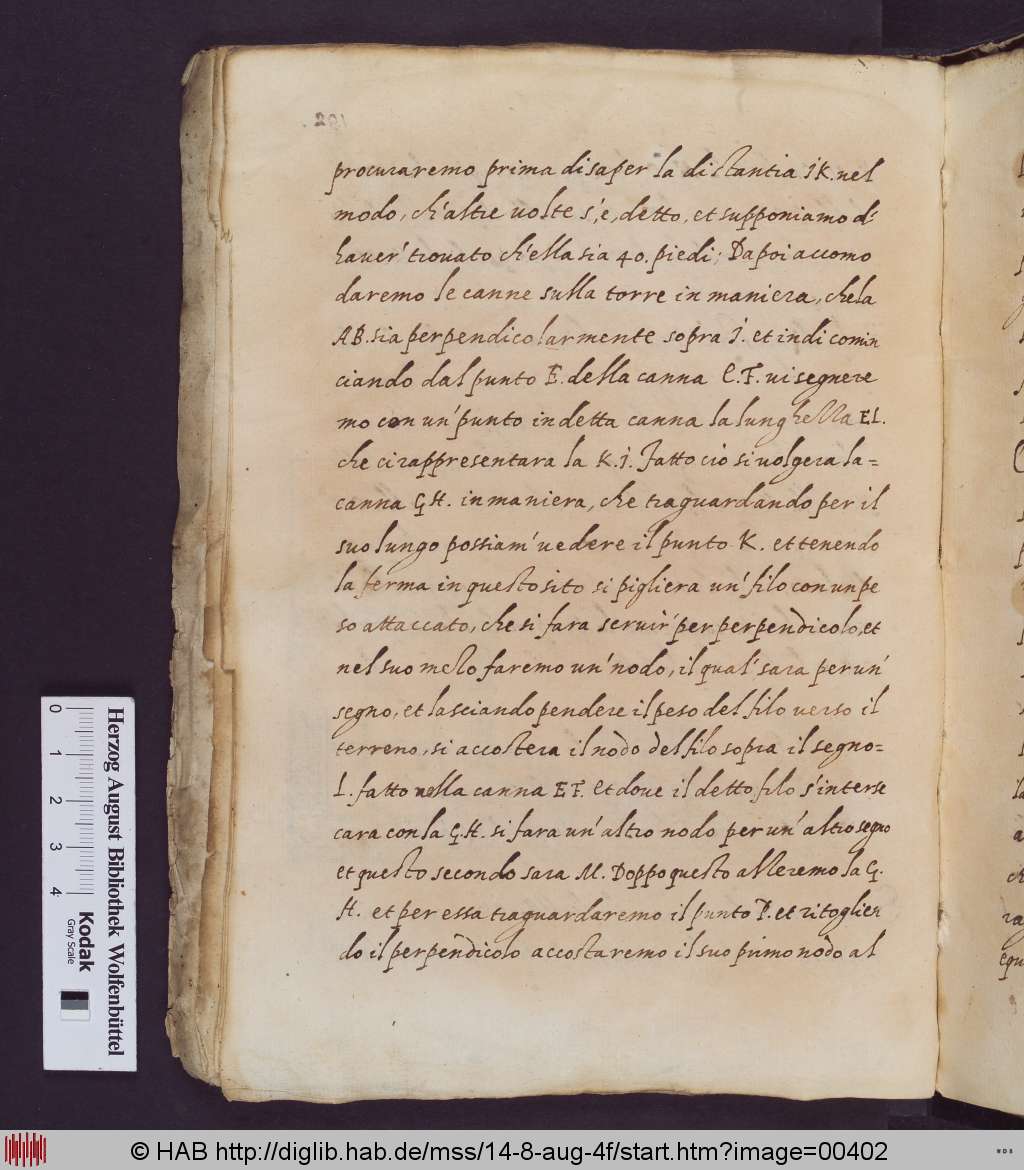 procuraremo prima di saper la distantia IK. nel
modo, ch'altre uolte s'è, detto, et supponiamo d'
hauer' trouato ch'ella sia 40. piedi; Dapoi accomo
daremo le canne sulla torre in maniera, che la
AB. sia perpendicolarmente sopra I. et indi comin
ciando dal punto E. della canna C.F. ui segnere
mo con un' punto in detta canna la lunghella EL.
che ci rappresentara la K.I. Fatto ciò si uolgera la=
canna G.H. in maniera, che traguardando per il
suo lungo possiam' uedere il punto K. et tenendo
la ferma in questo sito si pigliera un' filo con un pe
so attaccato, che si fara seruir' per perpendicolo, et
nel suo mezo faremo un' nodo, il qual' sara per un'
segno, et lasciando pendere il peso del filo verso il
terreno, si accostera il nodo del filo sopra il segno=
L. fatto nella canna EF. Et doue il detto filo s'interse
cara con la G.H. si fara un' altro nodo per un' altro segno
et questo secondo sara M. Doppo questo alleremo la G.
H. et per essa traguardaremo il punto P. et ritoglien
do il perpendicolo accostaremo il suo primo nodo al
Herzog August Bibliothek Wolfenbüttel
0 1 2 3 4
Kodak
Gray Scale
© HAB http://diglib.hab.de/mss/14-8-aug-4f/start.htm?image=00402